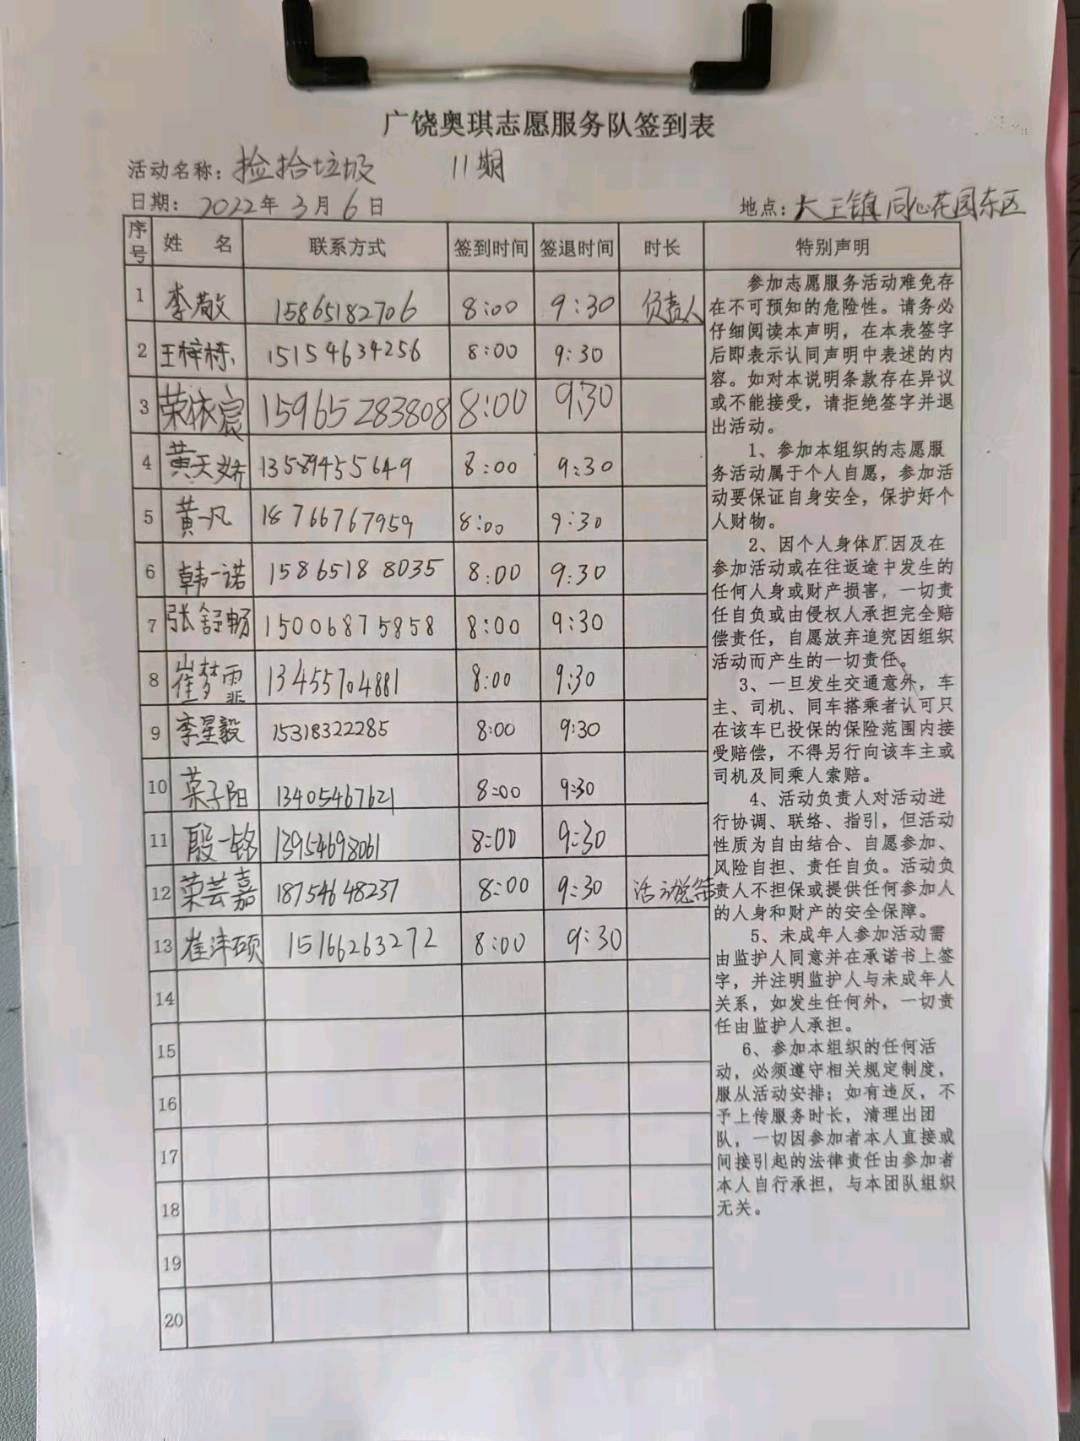 广饶奥琪志愿服务队签到表
活动名称：捡拾垃圾 11期
日期：2022年3月6日 地点：大王镇同心花园东区
序号 姓名 联系方式 签到时间 签退时间 时长 特别声明
1 李敬 15865182706 8:00 9:30 负责人
2 王梓栋 15154634256 8:00 9:30
3 荣依宸 15965283808 8:00 9:30
4 黄天娇 13589455649 8:00 9:30
5 黄一凡 18766767959 8:00 9:30
6 韩一诺 15865188035 8:00 9:30
7 张舒畅 15006875858 8:00 9:30
8 崔梦霏 13455704881 8:00 9:30
9 李星毅 15318322285 8:00 9:30
10 子阳 13405467621 8:00 9:30
11 殷一铭 13954698061 8:00 9:30
12 荣芸嘉 18754648237 8:00 9:30 活动总结
13 崔沣硕 15166263272 8:00 9:30
14
15
16
17
18
19
20
参加志愿服务活动难免存
在不可预知的危险性。请务必
仔细阅读本声明，在本表签字
后即表示认同声明中表述的内
容。如对本说明条款存在异议
或不能接受，请拒绝签字并退
出活动。
1、参加本组织的志愿服
务活动属于个人自愿，参加活
动要保证自身安全，保护好个
人财物。
2、因个人身体原因及在
参加活动或在往返途中发生的
任何人身或财产损害，一切责
任自负或由侵权人承担完全赔
偿责任，自愿放弃追究因组织
活动而产生的一切责任。
3、一旦发生交通意外，车
主、司机、同车搭乘者认可只
在该车已投保的保险范围内接
受赔偿，不得另行向该车主或
司机及同乘人索赔。
4、活动负责人对活动进
行协调、联络、指引，但活动
性质为自由结合、自愿参加、
风险自担、责任自负。活动负
责人不担保或提供任何参加人
的人身和财产的安全保障。
5、未成年人参加活动需
由监护人同意并在承诺书上签
字，并注明监护人与未成年人
关系，如发生任何外，一切责
任由监护人承担。
6、参加本组织的任何活
动，必须遵守相关规定制度，
服从活动安排；如有违反，不
予上传服务时长，清理出团
队，一切因参加者本人直接或
间接引起的法律责任由参加者
本人自行承担，与本团队组织
无关。